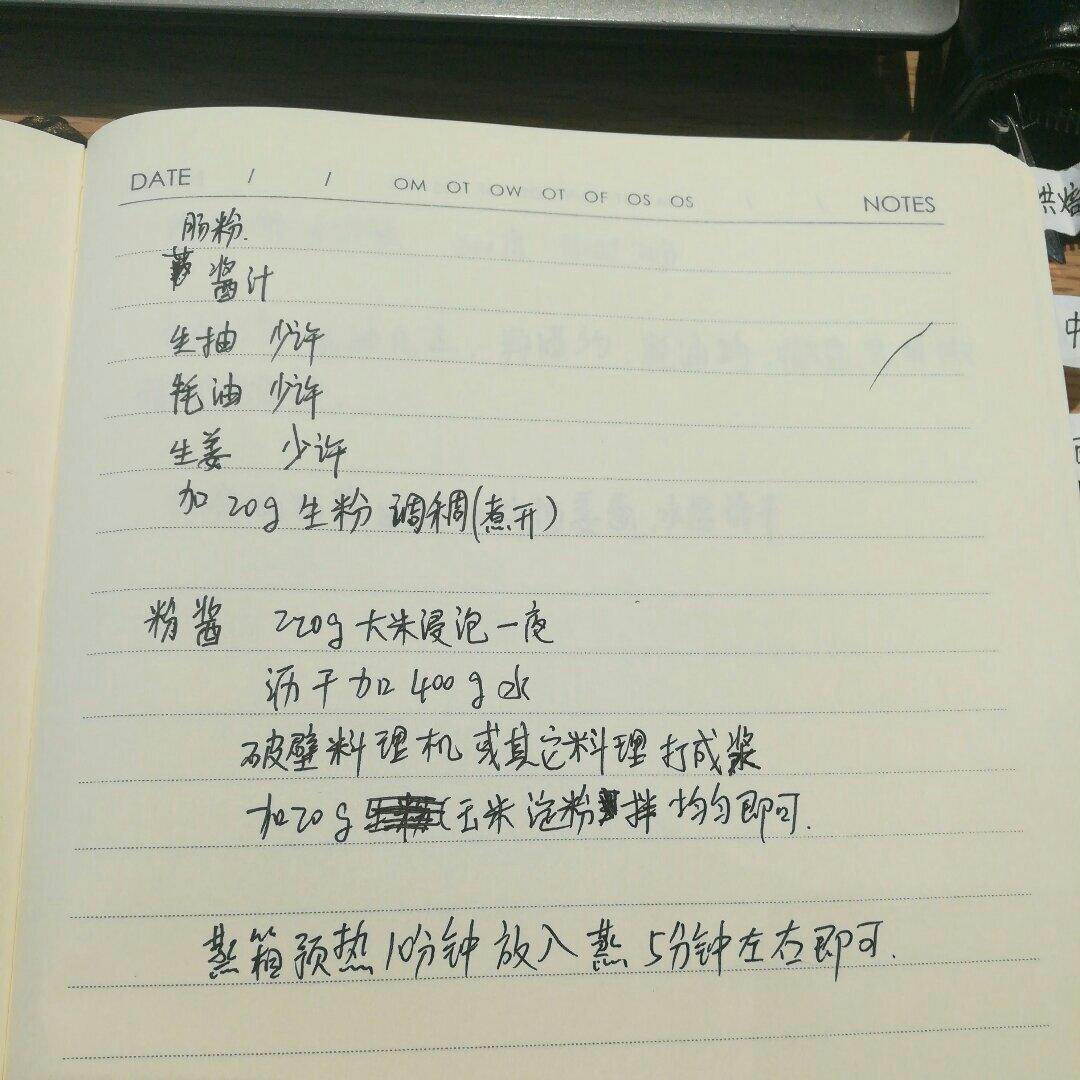 DATE / / OM OT OW OT OF OS OS NOTES
肠粉.
酱汁
生抽 少许
耗油 少许
生姜 少许
加 20g 生粉 调稠(煮开)
粉酱 220g 大米浸泡一夜
沥干加 400g 水
破壁料理机 或其它料理 打成浆
加20g 玉米淀粉 拌均匀即可.
蒸箱预热10分钟 放入蒸 5分钟左右即可.
烘焙
中